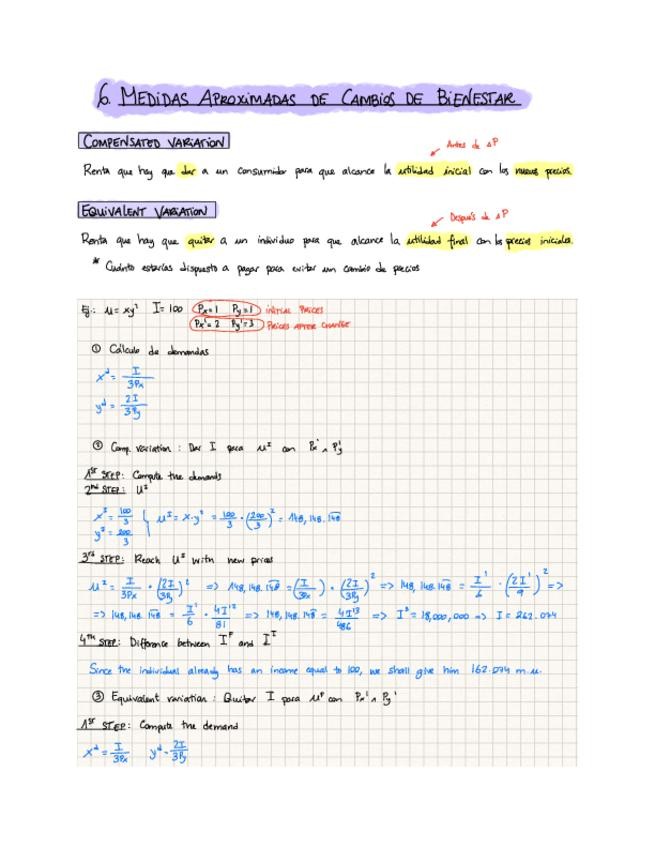 6. MEDIDAS APROXIMADAS DE CAMBIOS DE BIENESTAR
COMPENSATED VARIATION
Antes de ΔP
Renta que hay que dar a un consumidor para que alcance la utilidad inicial con los nuevos precios.
EQUIVALENT VARIATION
Después de ΔP
Renta que hay que quitar a un individuo para que alcance la utilidad final con los precios iniciales.
* Cuánto estarías dispuesto a pagar para evitar un cambio de precios
Ej.: u = xy² I = 100 Px = 1 Py = 1 INITIAL PRICES
Px' = 2 Py' = 3 PRICES AFTER CHANGE
① Cálculo de demandas
x^d = I / 3Px
y^d = 2I / 3Py
② Comp. variation : Dar I para u^I con Px' ^ Py'
1st STEP: Compute the demands
2nd STEP: U^I
x^I = 100/3
y^I = 200/3
u^I = x·y² = 100/3 · (200/3)² = 148,148.148
3rd STEP: Reach U^I with new prices
u^I = I/3Px · (2I/3Py)² => 148,148.148 = (I/3Px) · (2I/3Py)² => 148,148.148 = I'/6 · (2I'/9)² =>
=> 148,148.148 = I'/6 · 4I'²/81 => 148,148.148 = 4I'³/486 => I³ = 18,000,000 => I = 262.074
4th STEP: Difference between I^F and I^I
Since the individual already has an income equal to 100, we shall give him 162.074 m.u.
③ Equivalent variation : Quitar I para u^F con Px' ^ Py'
1st STEP: Compute the demand
x^d = I/3Px y^d = 2I/3Py